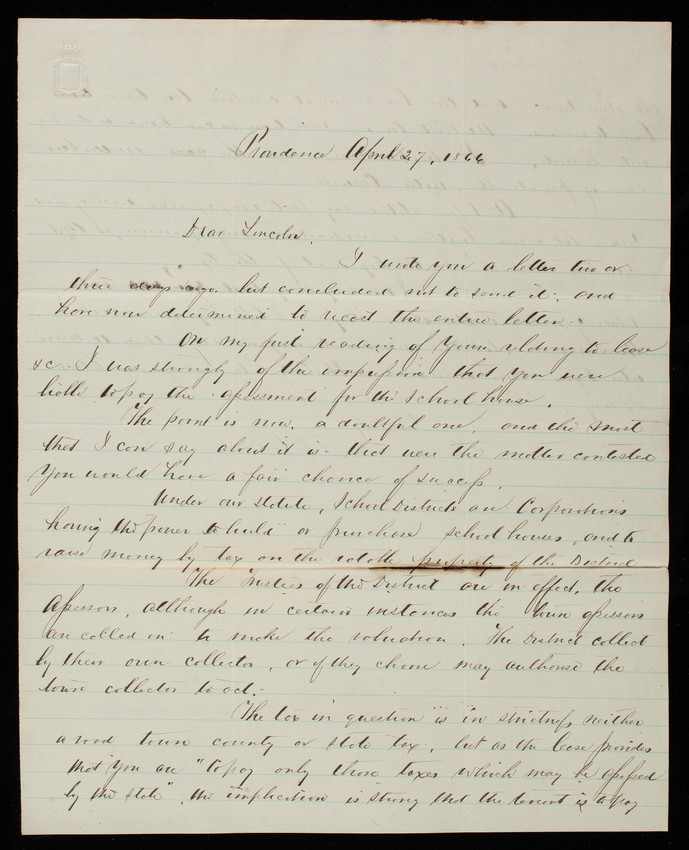 Providence April 27, 1866
Dear Lincoln.
I wrote you a letter two or
three days ago but concluded not to send it; and
have now determined to recast the entire letter.
On my first reading of yours relating to lease
&c. I was strongly of the impression that you were
liable to pay the assessment for the school house.
The point is new, a doubtful one, and the most
that I can say about it is that were the matter contested
you would have a fair chance of success.
Under our statute, School Districts are Corporations
having the power to build or purchase school houses, and to
raise money by tax on the ratable property of the District
The Trustees of the District are in effect, the
assessors, although in certain instances the town assessors
are called in to make the valuation. The District collect
by their own collector, or if they choose may authorise the
town collector to act.
The tax in question is in strictness neither
a road town county or state tax, but as the lease provides
that you are "to pay only those taxes which may be assessed
by the State", the implication is strong that the tenant is to pay